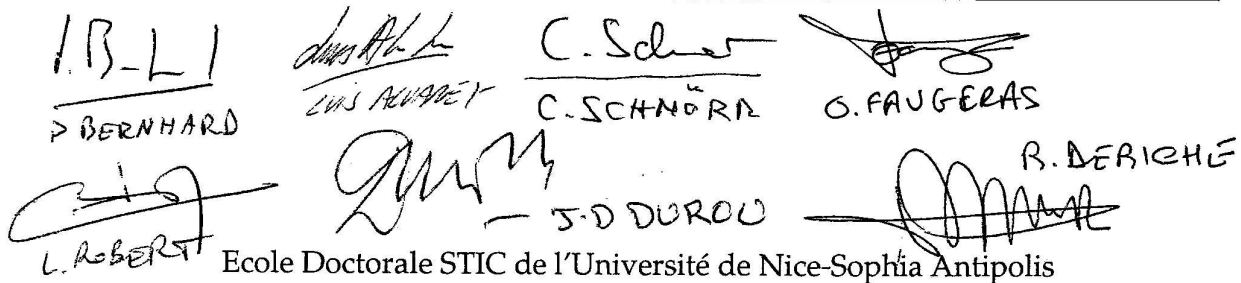 P BERNHARD
LUIS ALVAREZ
C. SCHNÖRR
O. FAUGERAS
L. ROBERT
J-D DUROU
R. DERICHE
Ecole Doctorale STIC de l'Université de Nice-Sophia Antipolis